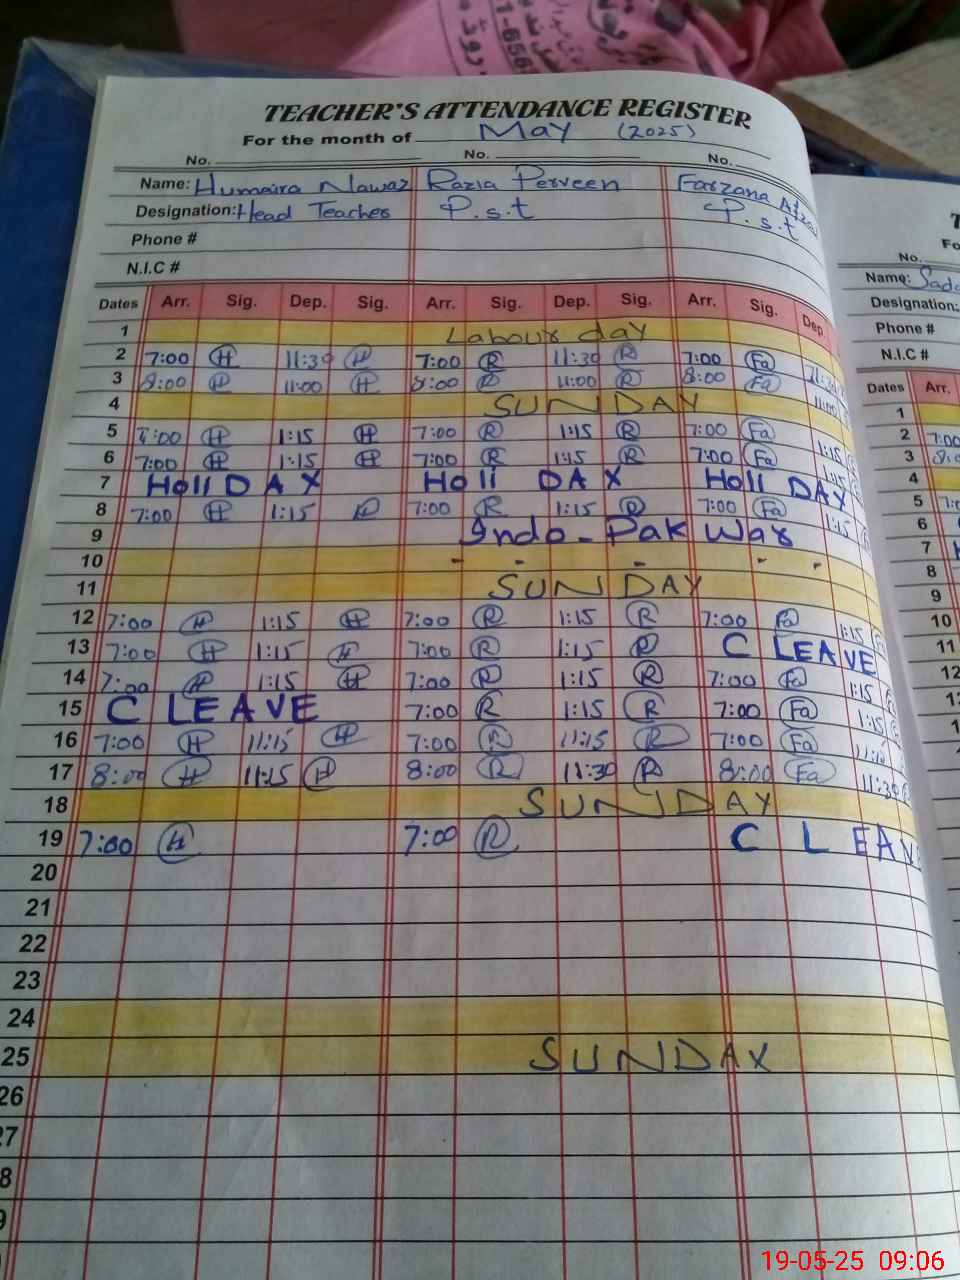 TEACHER'S ATTENDANCE REGISTER
For the month of May (2025)
No. No. No.
Name: Humaira Nawaz Razia Perveen Farzana
Designation: Head Teacher P.s.t P.s.t
Phone #
N.I.C #
Dates Arr. Sig. Dep. Sig. Arr. Sig. Dep. Sig. Arr. Sig. Dep.
1 Labour day
2 7:00 H 11:30 H 7:00 R 11:30 R 7:00 Fa 11:30
3 8:00 H 11:00 H 8:00 R 11:00 R 8:00 Fa 11:00
4 SUNDAY
5 7:00 H 1:15 H 7:00 R 1:15 R 7:00 Fa 1:15
6 7:00 H 1:15 H 7:00 R 1:15 R 7:00 Fa 1:15
7 HoliDAY Holi DAY Holi DAY
8 7:00 H 1:15 H 7:00 R 1:15 R 7:00 Fa 1:15
9 Indo-Pak War
10 - - - - -
11 SUNDAY
12 7:00 H 1:15 H 7:00 R 1:15 R 7:00 Fa 1:15
13 7:00 H 1:15 H 7:00 R 1:15 R C LEAVE
14 7:00 H 1:15 H 7:00 R 1:15 R 7:00 Fa 1:15
15 C LEAVE 7:00 R 1:15 R 7:00 Fa 1:15
16 7:00 H 11:15 H 7:00 R 11:15 R 7:00 Fa 11:15
17 8:00 H 11:15 H 8:00 R 11:30 R 8:00 Fa 11:30
18 SUNDAY
19 7:00 H 7:00 R C LEAV
20
21
22
23
24
25 SUNDAY
26
7
8
9
No.
Name: Sad
Designation:
Phone #
N.I.C #
Dates Arr.
1
2 7:00
3 8:0
4
5
6
7
8
9
10
11
12
19-05-25 09:06